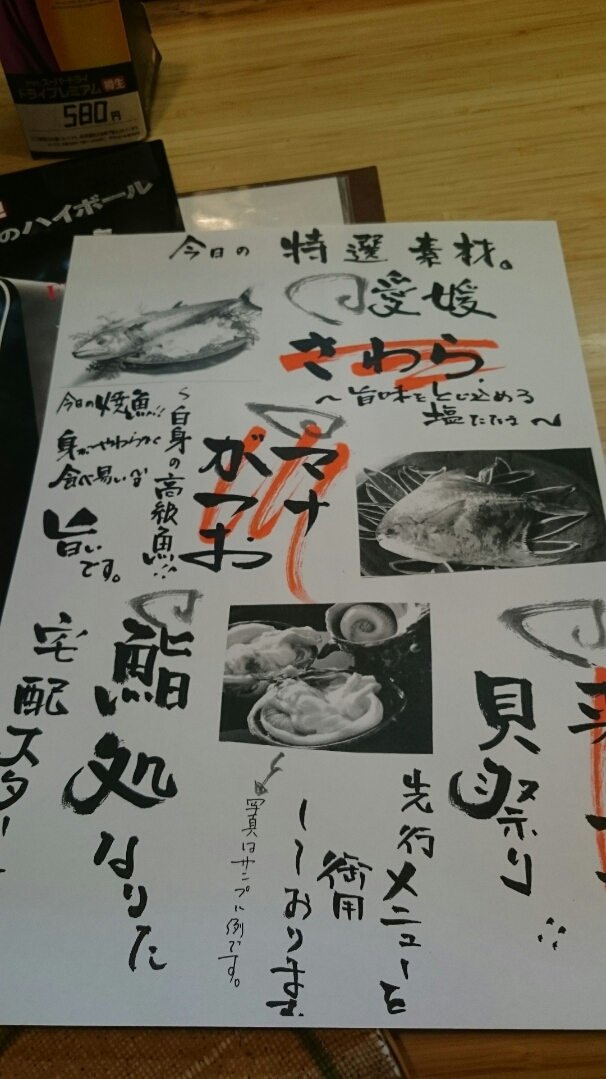 ドライプレミアム 樽生
580円
のハイボール
今日の 特選素材。
愛媛
さわら
〜旨味をとじ込める
塩たたき〜
マナ
がつお
〜白身の高級魚!!
今日の焼魚!!
身がやわらかく
食べ易いな
旨い
です。
貝祭り
先行メニューを
御用
しております
写真はサンプル例です。
鮨処 なりた
宅配スター